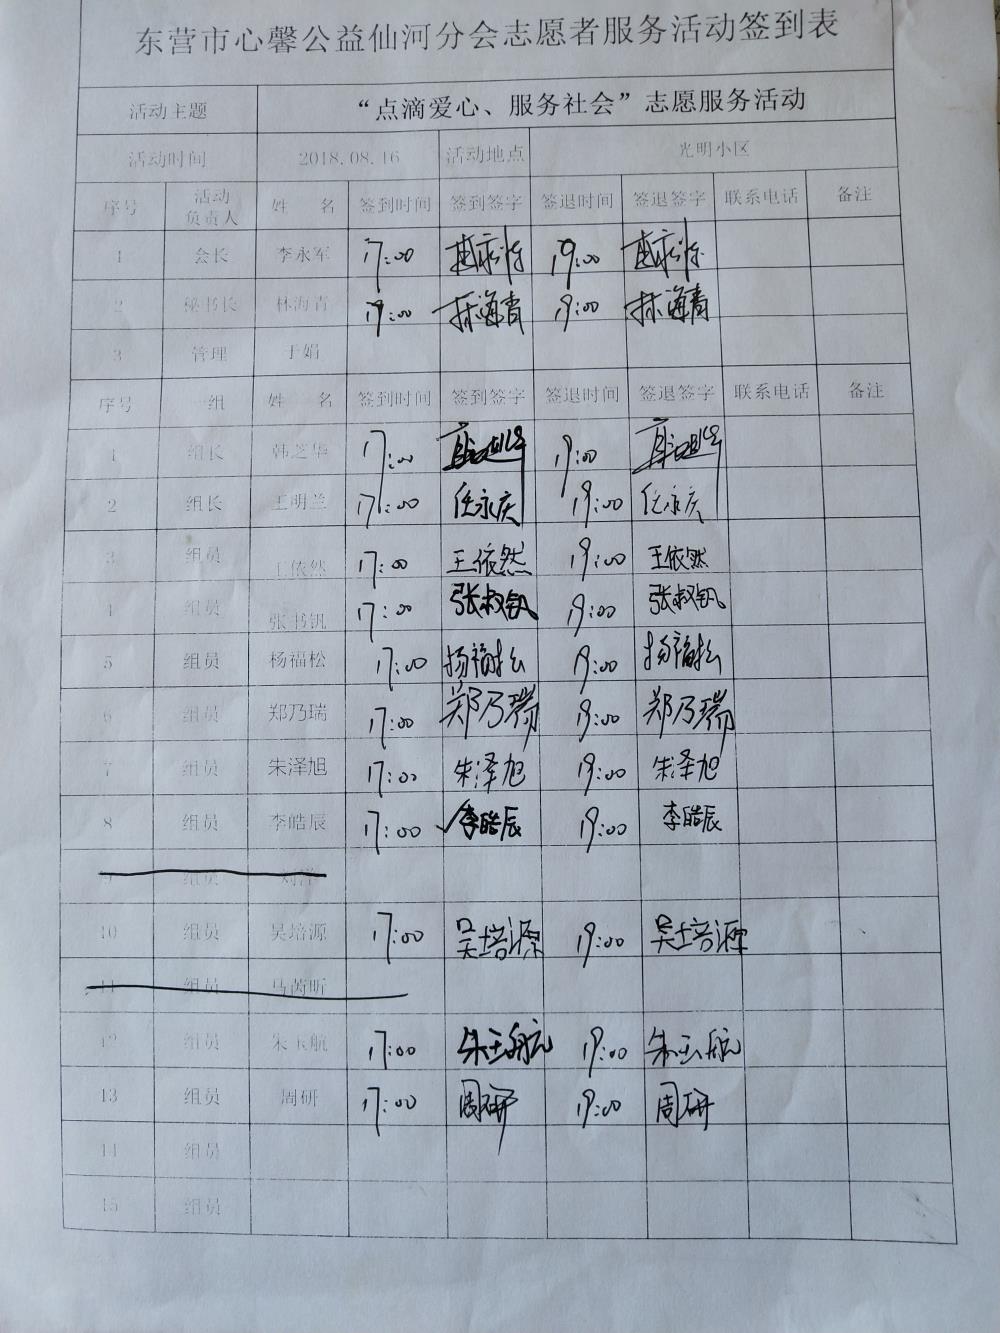 东营市心馨公益仙河分会志愿者服务活动签到表
活动主题 “点滴爱心、服务社会”志愿服务活动
活动时间 2018.08.16 活动地点 光明小区
序号 活动负责人 姓 名 签到时间 签到签字 签退时间 签退签字 联系电话 备注
1 会长 李永军 17:00 19:00
2 秘书长 林海青 19:00 林海青 19:00 林海青
3 管理 于娟
序号 一组 姓 名 签到时间 签到签字 签退时间 签退签字 联系电话 备注
1 组长 韩芝华 17:00 19:00
2 组长 王明兰 17:00 任永庆 19:00 任永庆
3 组员 王依然 17:00 王依然 19:00 王依然
4 组员 张书钒 17:00 张叔钒 19:00 张叔钒
5 组员 杨福松 17:00 杨福松 19:00 杨福松
6 组员 郑乃瑞 17:00 郑乃瑞 19:00 郑乃瑞
7 组员 朱泽旭 17:00 朱泽旭 19:00 朱泽旭
8 组员 李皓辰 17:00 李皓辰 19:00 李皓辰
9 组员
10 组员 吴培源 17:00 吴培源 19:00 吴培源
11 组员 马芮昕
12 组员 朱玉航 17:00 朱玉航 19:00 朱玉航
13 组员 周研 17:00 周研 19:00 周研
14 组员
15 组员